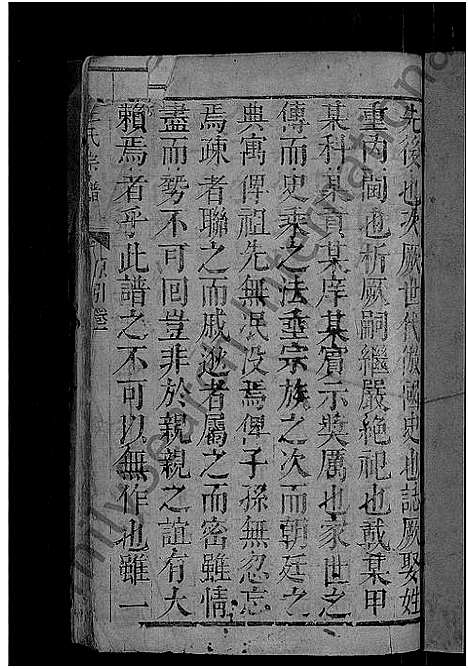 先後也次厥世代倣國史也誌厥娶姓
重內閫也析厥嗣繼嚴絶祀也載某甲
某科某貢某庠某賓示奬厲也家世之
傳而史乘之法埀宗族之次而朝廷之
典寓俾祖先無泯没焉俾子孫無忽忘
焉疎者聯之而戚逖者屬之而密雖情
盡而勢不可回豈非於親親之誼有大
賴焉者乎此譜之不可以無作也雖一
氏宗譜